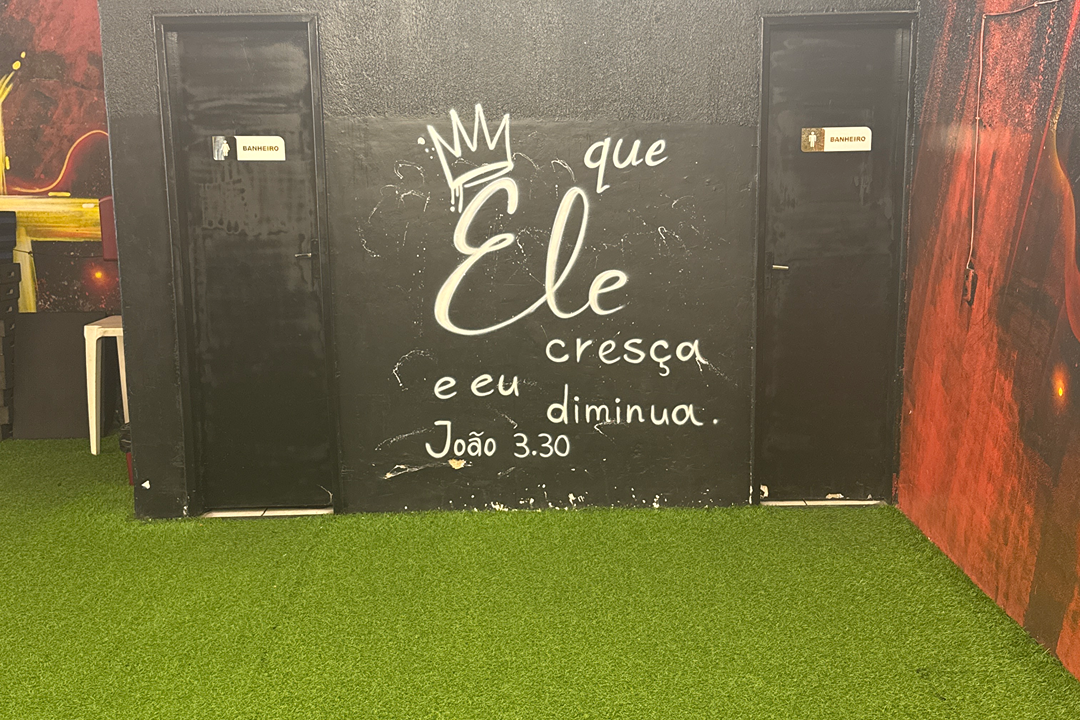 BANHEIRO
BANHEIRO
que
Ele
cresça
e eu
diminua.
João 3.30